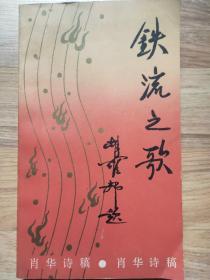 铁流之歌
胡耀邦题
肖华诗稿●肖华诗稿